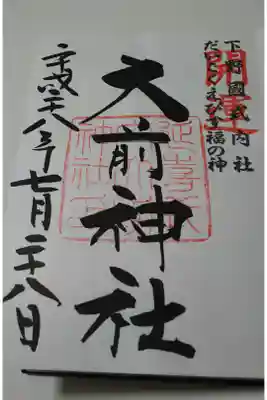 下野國式内社
だいこくえびす福の神
開運
大前神社
延喜式
平成二十八年七月二十八日